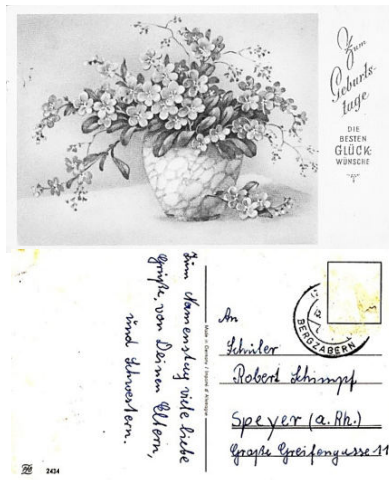 Zum
Geburts-
tage
DIE
BESTEN
GLÜCK-
WÜNSCHE
Zum Namenstag viele liebe
Grüße, von Deinen Eltern,
und Schwestern.
2434
Made in Germany / Importé d'Allemagne
BERGZABERN
An
Schüler
Robert Schimpf
Speyer (a. Rh.)
Große Greifengasse 11